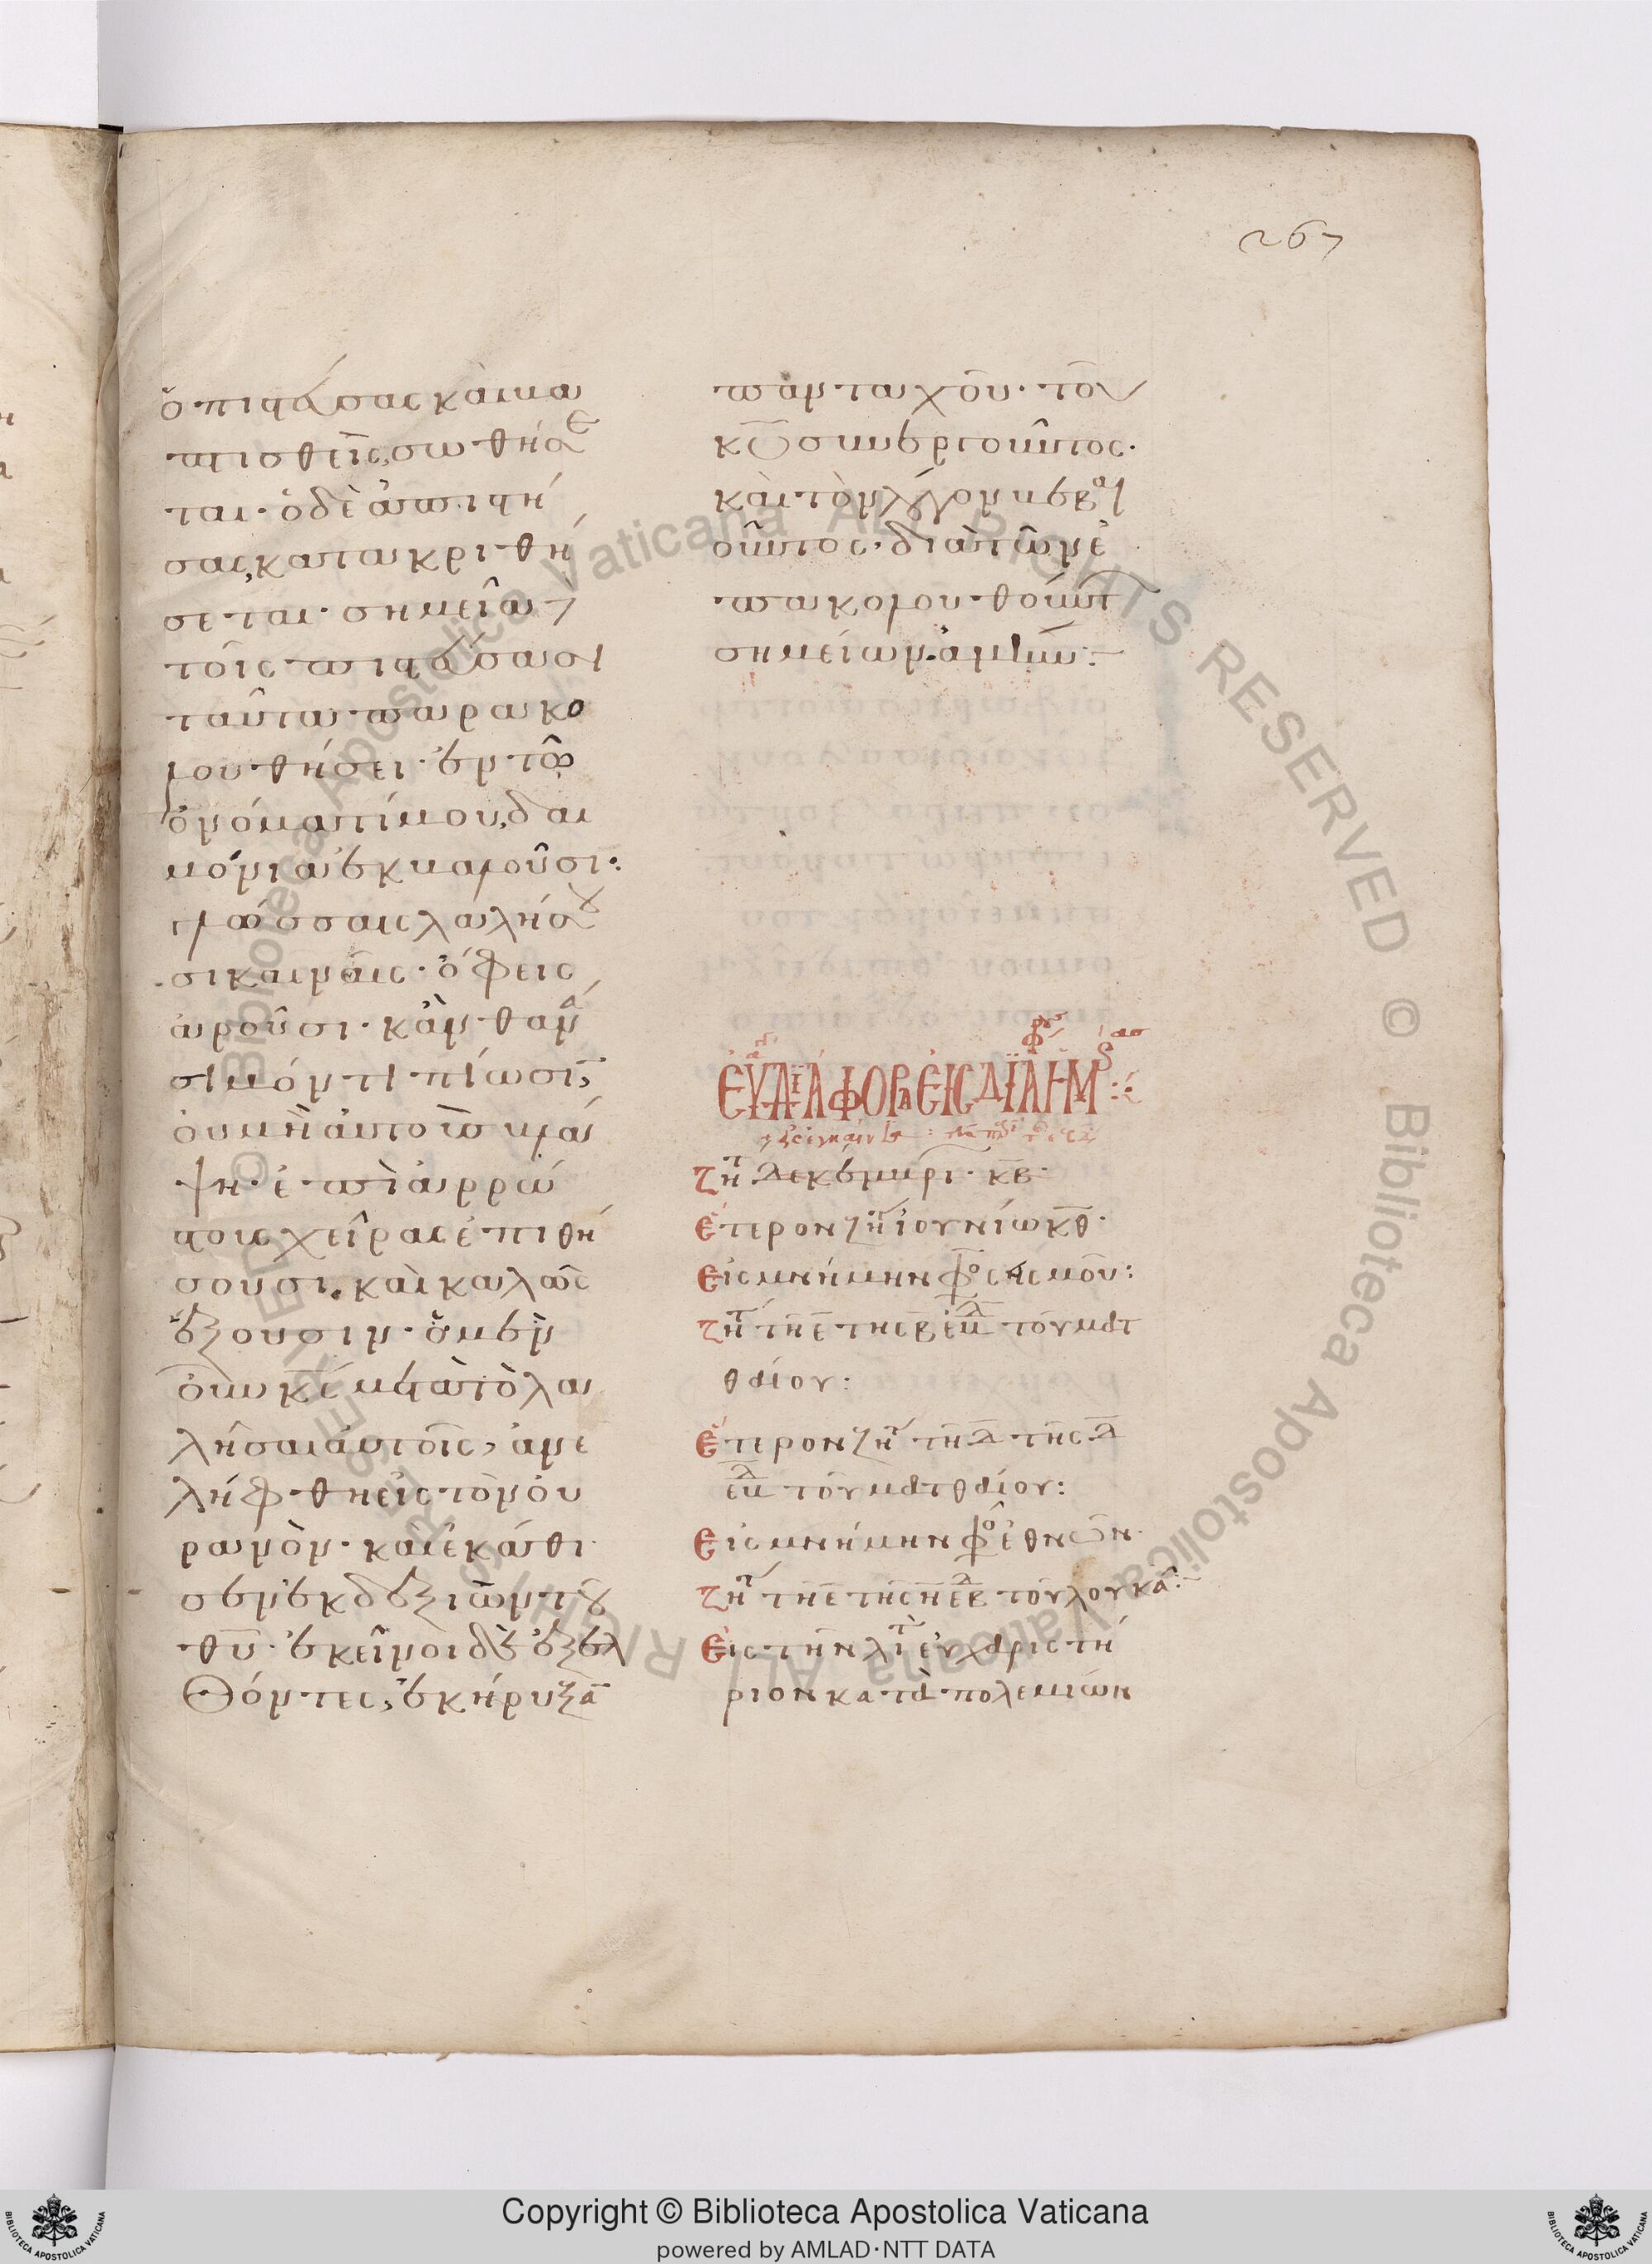 267
ὁ πιστεύσας καὶ βα
πτισθεὶς, σωθήσε
ται· ὁ δὲ ἀπιστή
σας, κατακριθή
σεται· σημεῖα δὲ
τοῖς πιστεύσασι
ταῦτα παρακο
λουθήσει· ἐν τῶ
ὀνόματί μου, δαι
μόνια ἐκβαλοῦσι·
γλώσσαις λαλήσου
σι καιναῖς· ὄφεις
ἀροῦσι· κἂν θανά
σιμόν τι πίωσι,
οὐ μὴ αὐτοὺς βλά
ψη· ἐπὶ ἀρρώ
στους χεῖρας ἐπιθή
σουσι· καὶ καλῶς
ἕξουσιν· ὁ μὲν
οὖν κς μετὰ τὸ λα
λῆσαι αὐτοῖς, ἀνε
λήφθη εἰς τὸν οὐ
ρανὸν· καὶ ἐκάθι
σεν ἐκ δεξιῶν τοῦ
θυ· ἐκεῖνοι δὲ ἐξελ
θόντες, ἐκήρυξαν
πανταχοῦ· τοῦ
κυ συνεργοῦντος·
καὶ τὸν λόγον βεβαι
οῦντος, διὰ τῶν ἐ
πακολουθούντ
σημείων· ἀμήν:
ζητ δεκεμβρι κβ
ἕτερον ζητ ἰουνίω κθ
Εἰς μνήμην φο σεισμοῦ:
ζητ τῆ ε τῆς β ἑβδ τοῦ ματ
θαίου:
ἕτερον ζητ τῆ δ τῆς δ
ἑβδ τοῦ ματθαίου:
Εἰς μνήμην φο ἐθνῶν
ζητ τῆ ε τῆς η ἑβδ τοῦ λουκᾶ:
Εἰς τὴν λιτ εὐχαριστή
ριον κατὰ πολεμίων
Copyright © Biblioteca Apostolica Vaticana
powered by AMLAD·NTT DATA